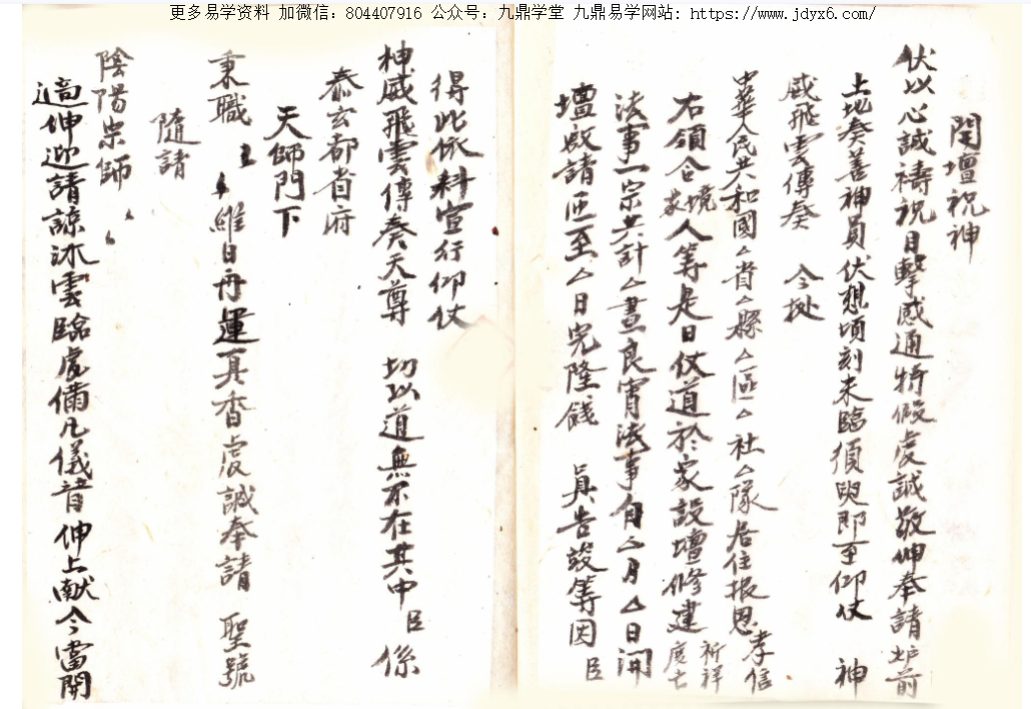 更多易学资料 加微信：804407916 公众号：九鼎学堂 九鼎易学网站：https://www.jdyx6.com/
開壇祝神
伏以心誠禱祝目擊感通特假虔誠敬伸奉請爐前
土地奏善神員伏想頃刻來臨須臾即至仰仗 神
威飛雲傳奏 今掀
中華人民共和國△省△縣△區△社△隊居住報恩孝信
右領合境家人等是日仗道於家設壇修建祈祥度亡
法事一宗共計△晝良宵法事自△月△日開
壇啟請至△日完隆餞 具告竣等因 臣
得此依科宣行仰仗
神威飛雲傳奏天尊 切以道無不在其中 臣係
泰玄都省府
天師門下
秉職 維日再運真香虔誠奉請 聖號
隨請
陰陽宗師
適伸迎請諒沐雲臨處備凡儀首伸上献今當開